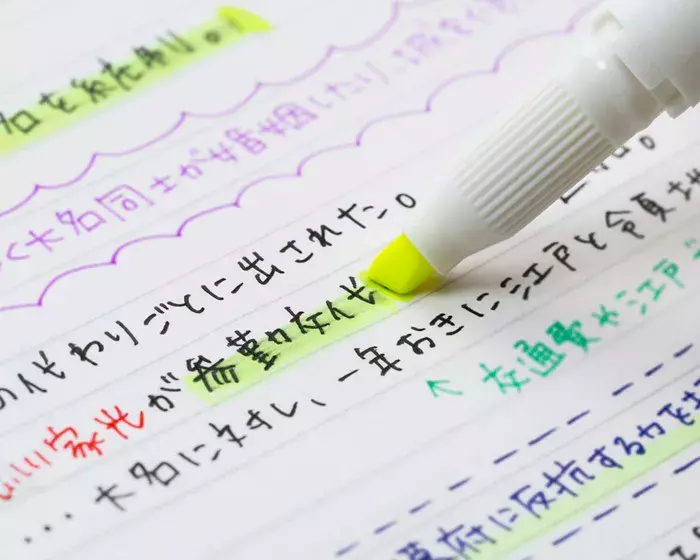 名を統制。
く大名同士が婚姻したり、城を
の代わりごとに出された。
川家光が参勤交代
…大名に対し、一年おきに江戸と領地
↑ 交通費や江戸
幕府に反抗する力を